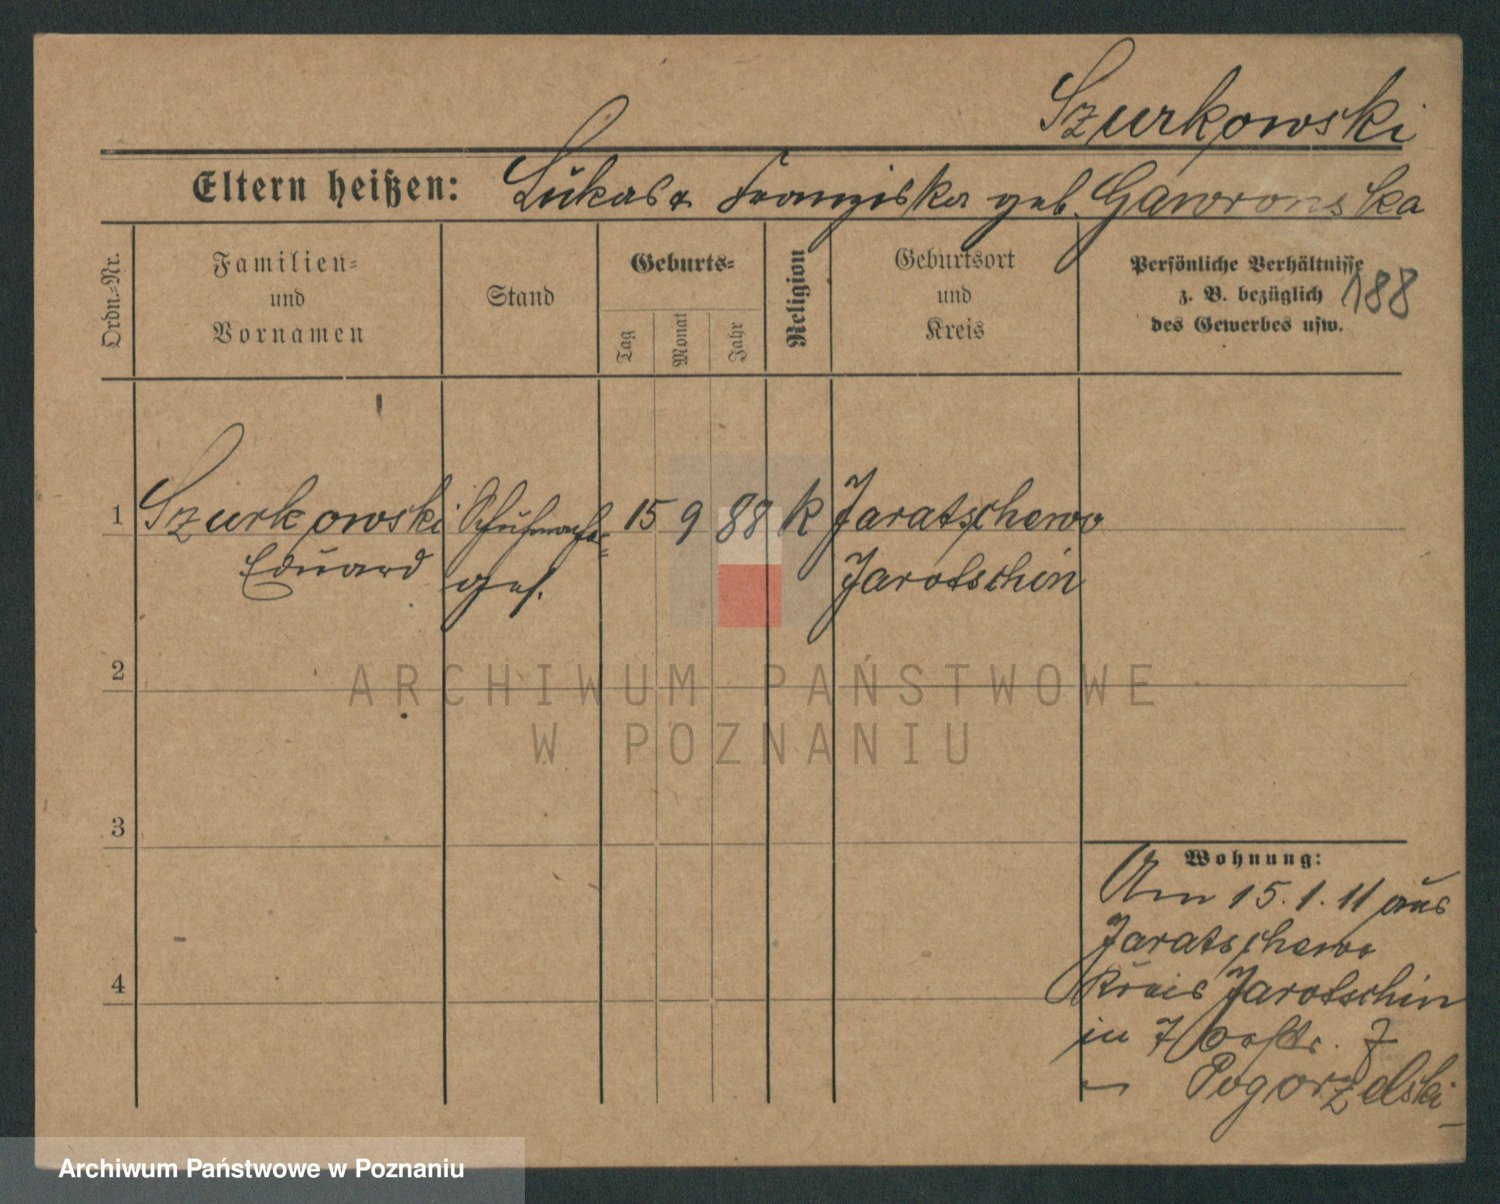 Szurkowski
Eltern heißen: Lukas & Franziska geb. Gawronska
Ordn.-Nr.
Familien-
und
Vornamen
Stand
Geburts-
Tag
Monat
Jahr
Religion
Geburtsort
und
Kreis
Persönliche Verhältnisse
z. B. bezüglich
des Gewerbes usw.
188
1 Szurkowski Schuhmacher- 15 9 88 k Jaratschewo
Eduard ges. Jarotschin
2
3
4
Wohnung:
Am 15.1.11 aus
Jaratschewo
Kreis Jarotschin
in
Pogorzelski
ARCHIWUM PAŃSTWOWE
W POZNANIU
Archiwum Państwowe w Poznaniu